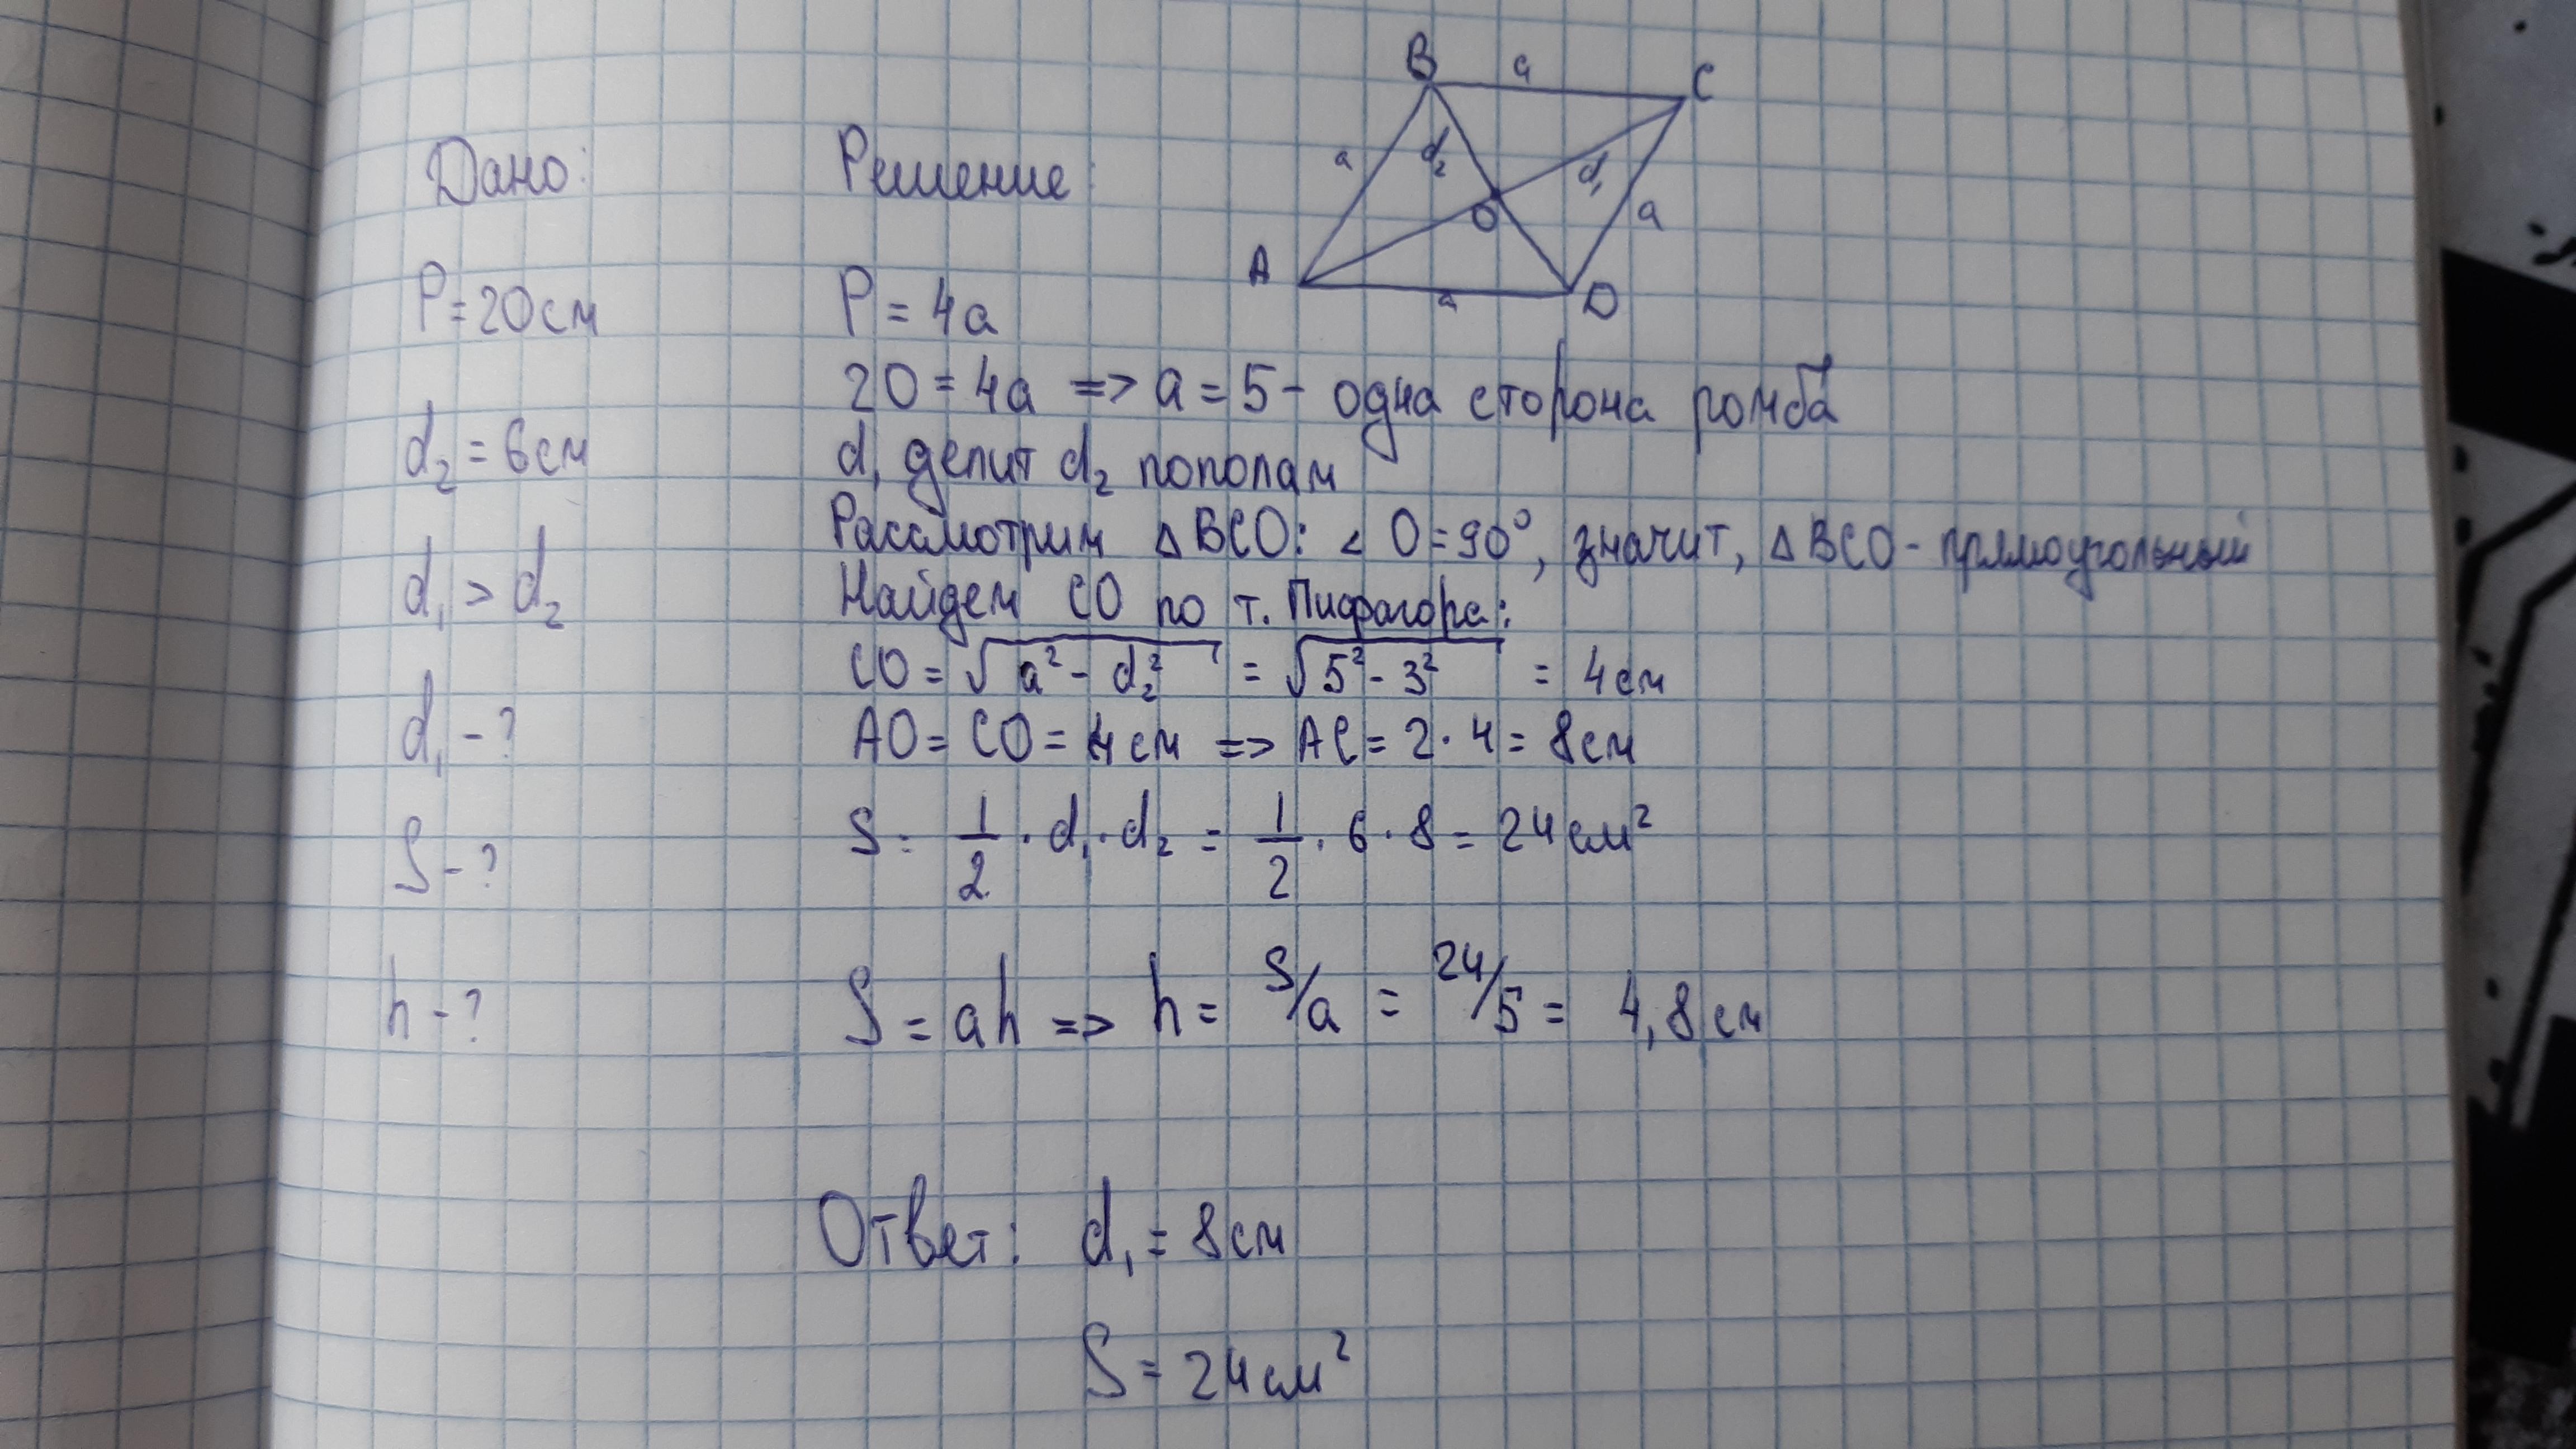 B a C
a d₂ d₁
O a
A a D
Дано:
P = 20 см
d₂ = 6 см
d₁ > d₂
d₁ - ?
S - ?
h - ?
Решение:
P = 4a
20 = 4a => a = 5 - одна сторона ромба
d₁ делит d₂ пополам
Рассмотрим △BCO: ∠O = 90°, значит, △BCO - прямоугольный
Найдем CO по т. Пифагора:
CO = √(a² - d₂²) = √(5² - 3²) = 4 см
AO = CO = 4 см => AC = 2 · 4 = 8 см
S = 1/2 · d₁ · d₂ = 1/2 · 6 · 8 = 24 см²
S = ah => h = S/a = 24/5 = 4,8 см
Ответ: d₁ = 8 см
S = 24 см²